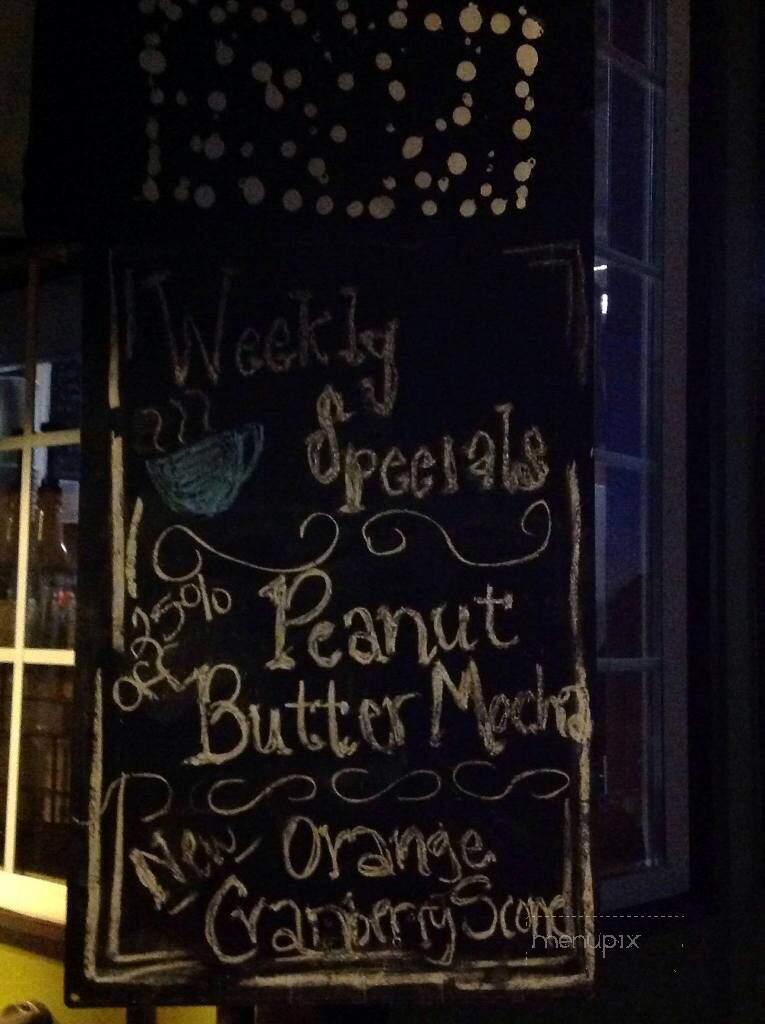 Weekly
Specials
25%
off
Peanut
Butter Mocha
New Orange
Cranberry Scone
menupix